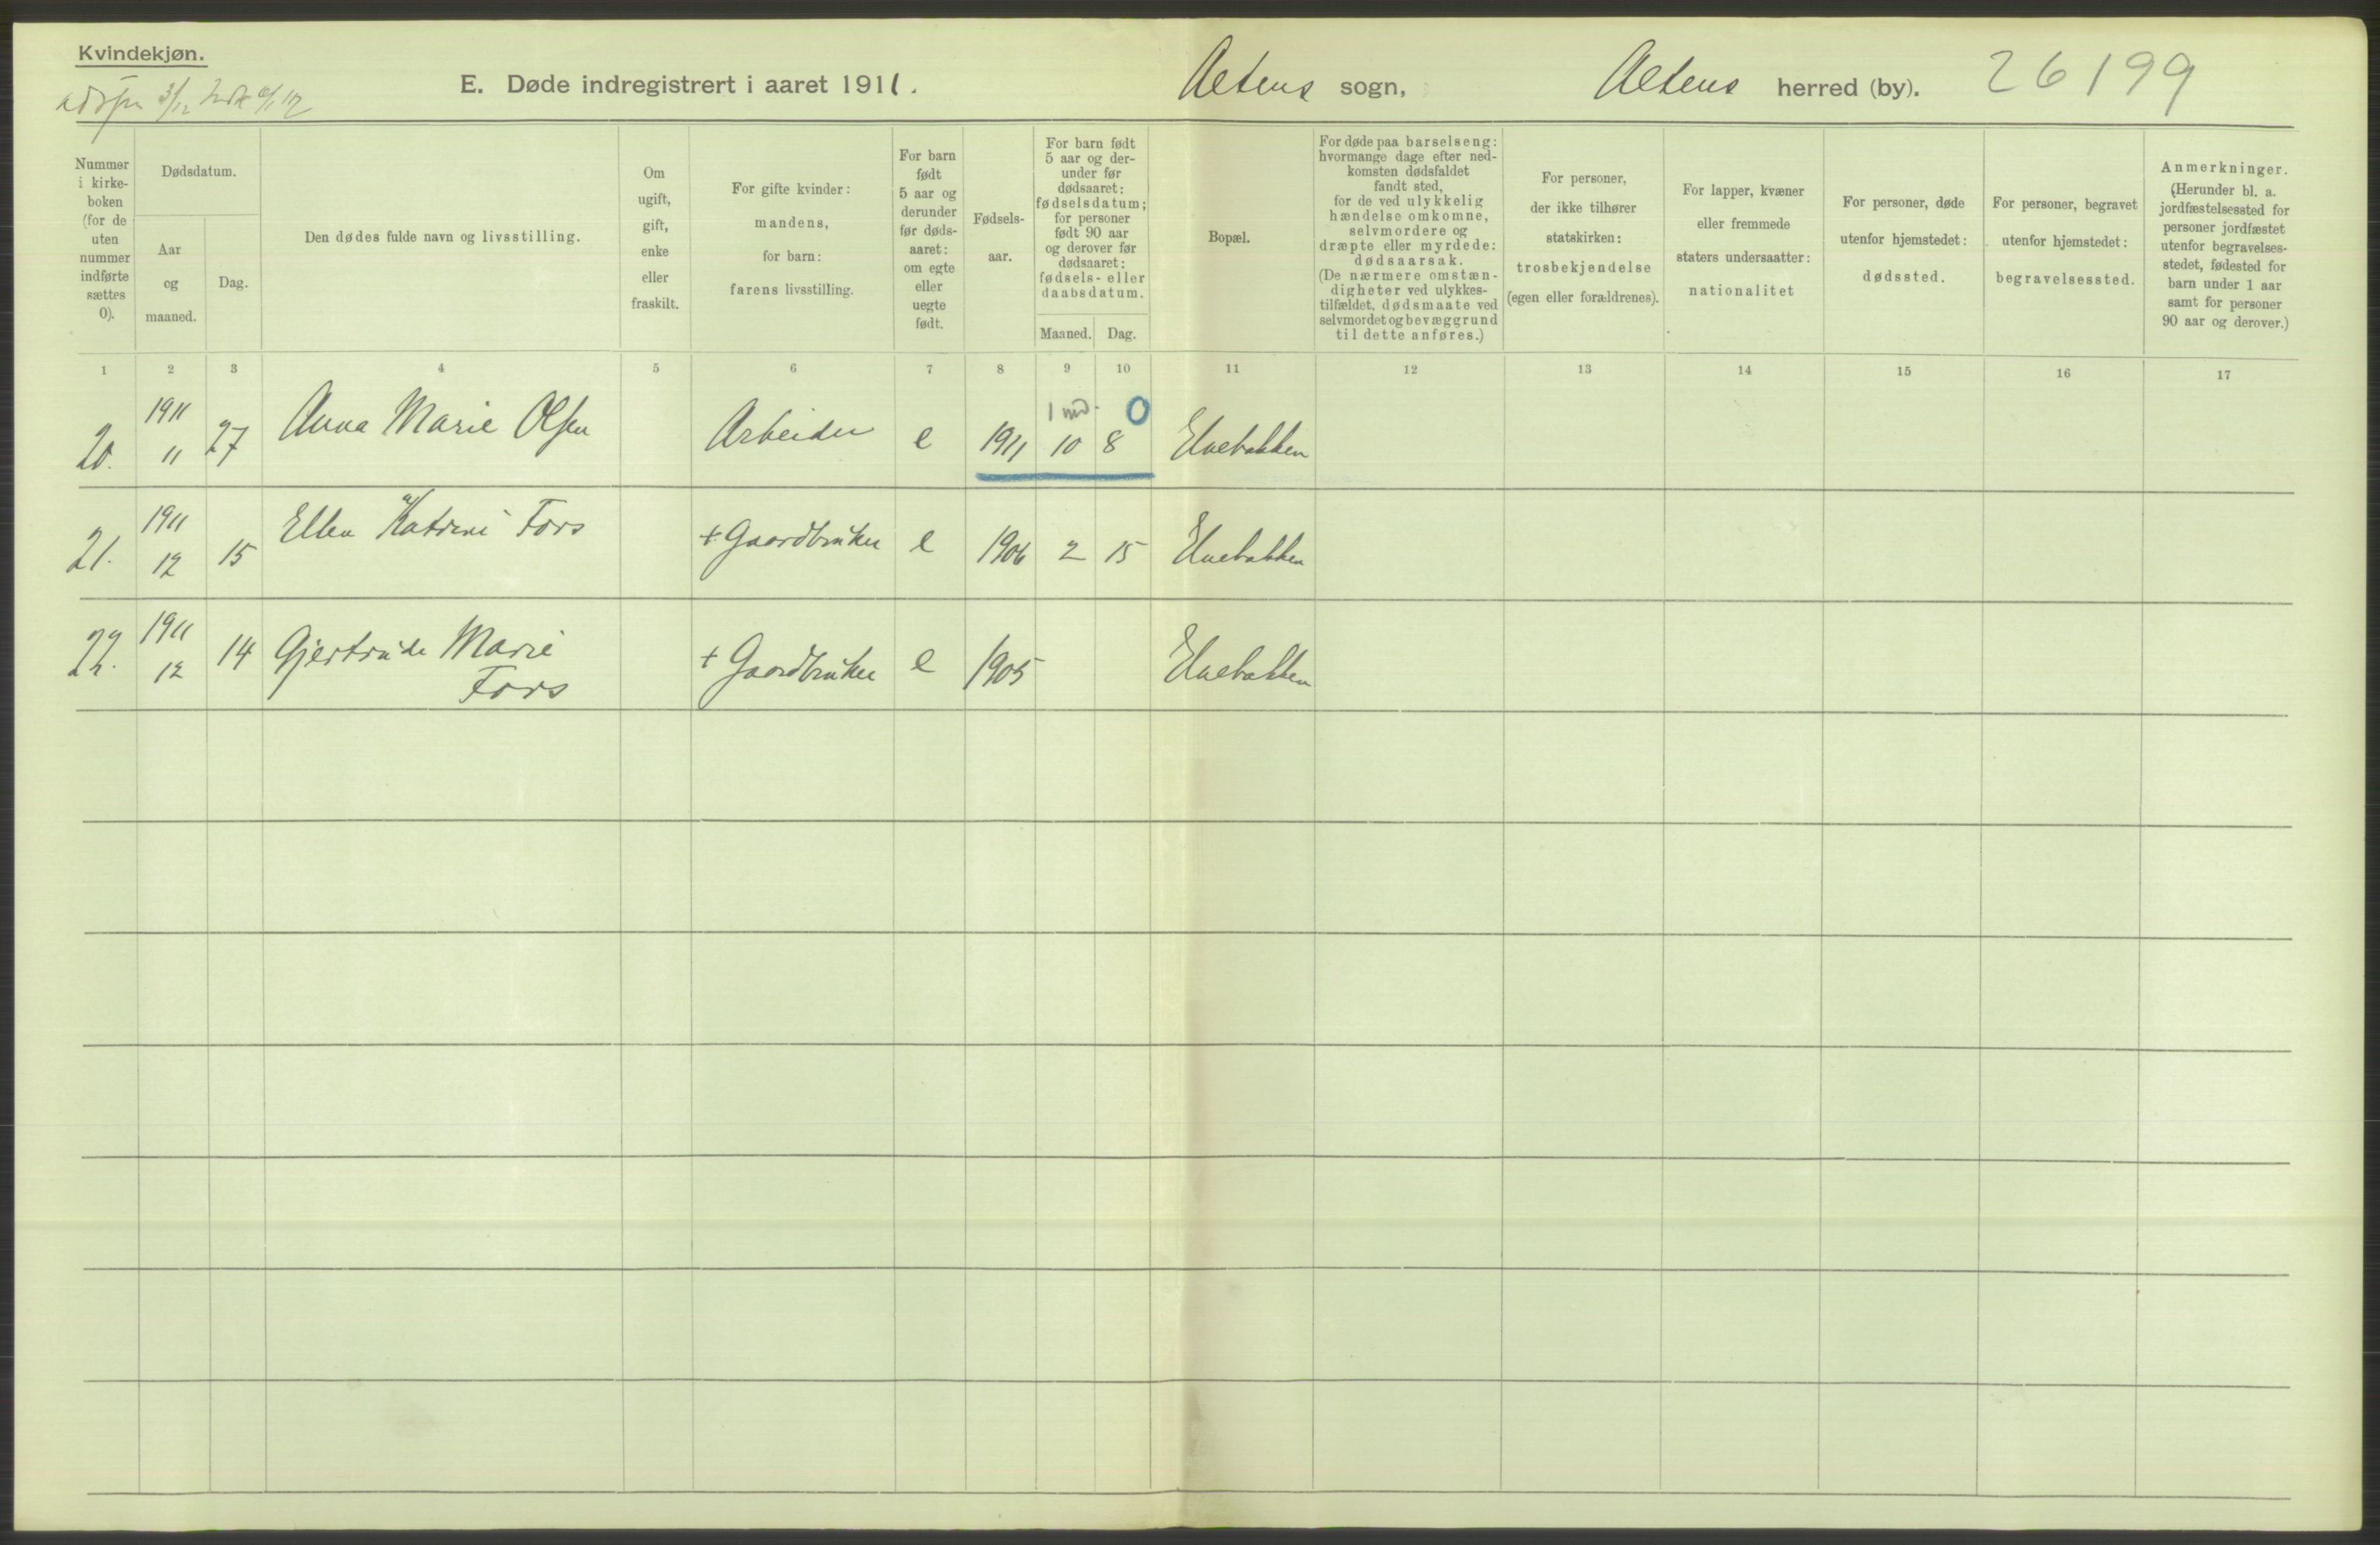 Kvindekjøn.
E. Døde indregistrert i aaret 1911. Altens sogn, Altens herred (by). 26199
3/12
Nummer
i kirke-
boken
(for de
uten
nummer
indførte
sættes
0).
Dødsdatum.
Aar
og
maaned.
Dag.
Den dødes fulde navn og livsstilling.
Om
ugift,
gift,
enke
eller
fraskilt.
For gifte kvinder:
mandens,
for barn:
farens livsstilling.
For barn
født
5 aar og
derunder
før døds-
aaret:
om egte
eller
uegte
født.
Fødsels-
aar.
For barn født
5 aar og der-
under før
dødsaaret:
fødselsdatum;
for personer
født 90 aar
og derover før
dødsaaret:
fødsels- eller
daabsdatum.
Maaned. Dag.
Bopæl.
For døde paa barselseng:
hvormange dage efter ned-
komsten dødsfaldet
fandt sted,
for de ved ulykkelig
hændelse omkomne,
selvmordere og
dræpte eller myrdede:
dødsaarsak.
(De nærmere omstæn-
digheter ved ulykkes-
tilfældet, dødsmaate ved
selvmordet og bevæggrund
til dette anføres.)
For personer,
der ikke tilhører
statskirken:
trosbekjendelse
(egen eller forældrenes).
For lapper, kvæner
eller fremmede
staters undersaatter:
nationalitet
For personer, døde
utenfor hjemstedet:
dødssted.
For personer, begravet
utenfor hjemstedet:
begravelsessted.
Anmerkninger.
(Herunder bl. a.
jordfæstelsessted for
personer jordfæstet
utenfor begravelses-
stedet, fødested for
barn under 1 aar
samt for personer
90 aar og derover.)
1 2 3 4 5 6 7 8 9 10 11 12 13 14 15 16 17
1911 1 md. 0
20. 11 27 Anna Marie Olsen Arbeider e 1911 10 8 Elvebakken
1911
21. 12 15 Ellen Katrine Fors + Gaardbruker e 1906 2 15 Elvebakken
1911
22. 12 14 Gjertrude Marie + Gaardbruker e 1905 Elvebakken
Fors